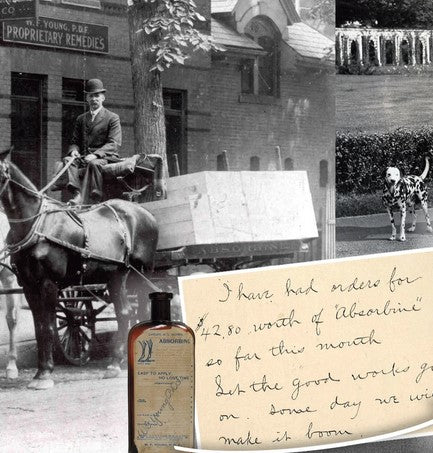 CO
W.F. YOUNG, P.D.F.
PROPRIETARY REMEDIES
ABSORBINE
EASY TO APPLY
I have had orders for
$42.80 worth of "Absorbine"
so far this month
Let the good works go
on. Some day we wi
make it boom